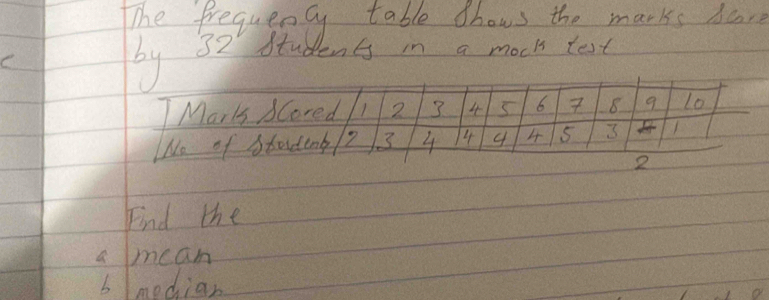 The frequency table shows the marks score
by 32 students in a mock test
Mark Scored 1 2 3 4 5 6 7 8 9 10
No of Students 2 3 4 4 4 4 5 3 1
2
Find the
a mean
b median